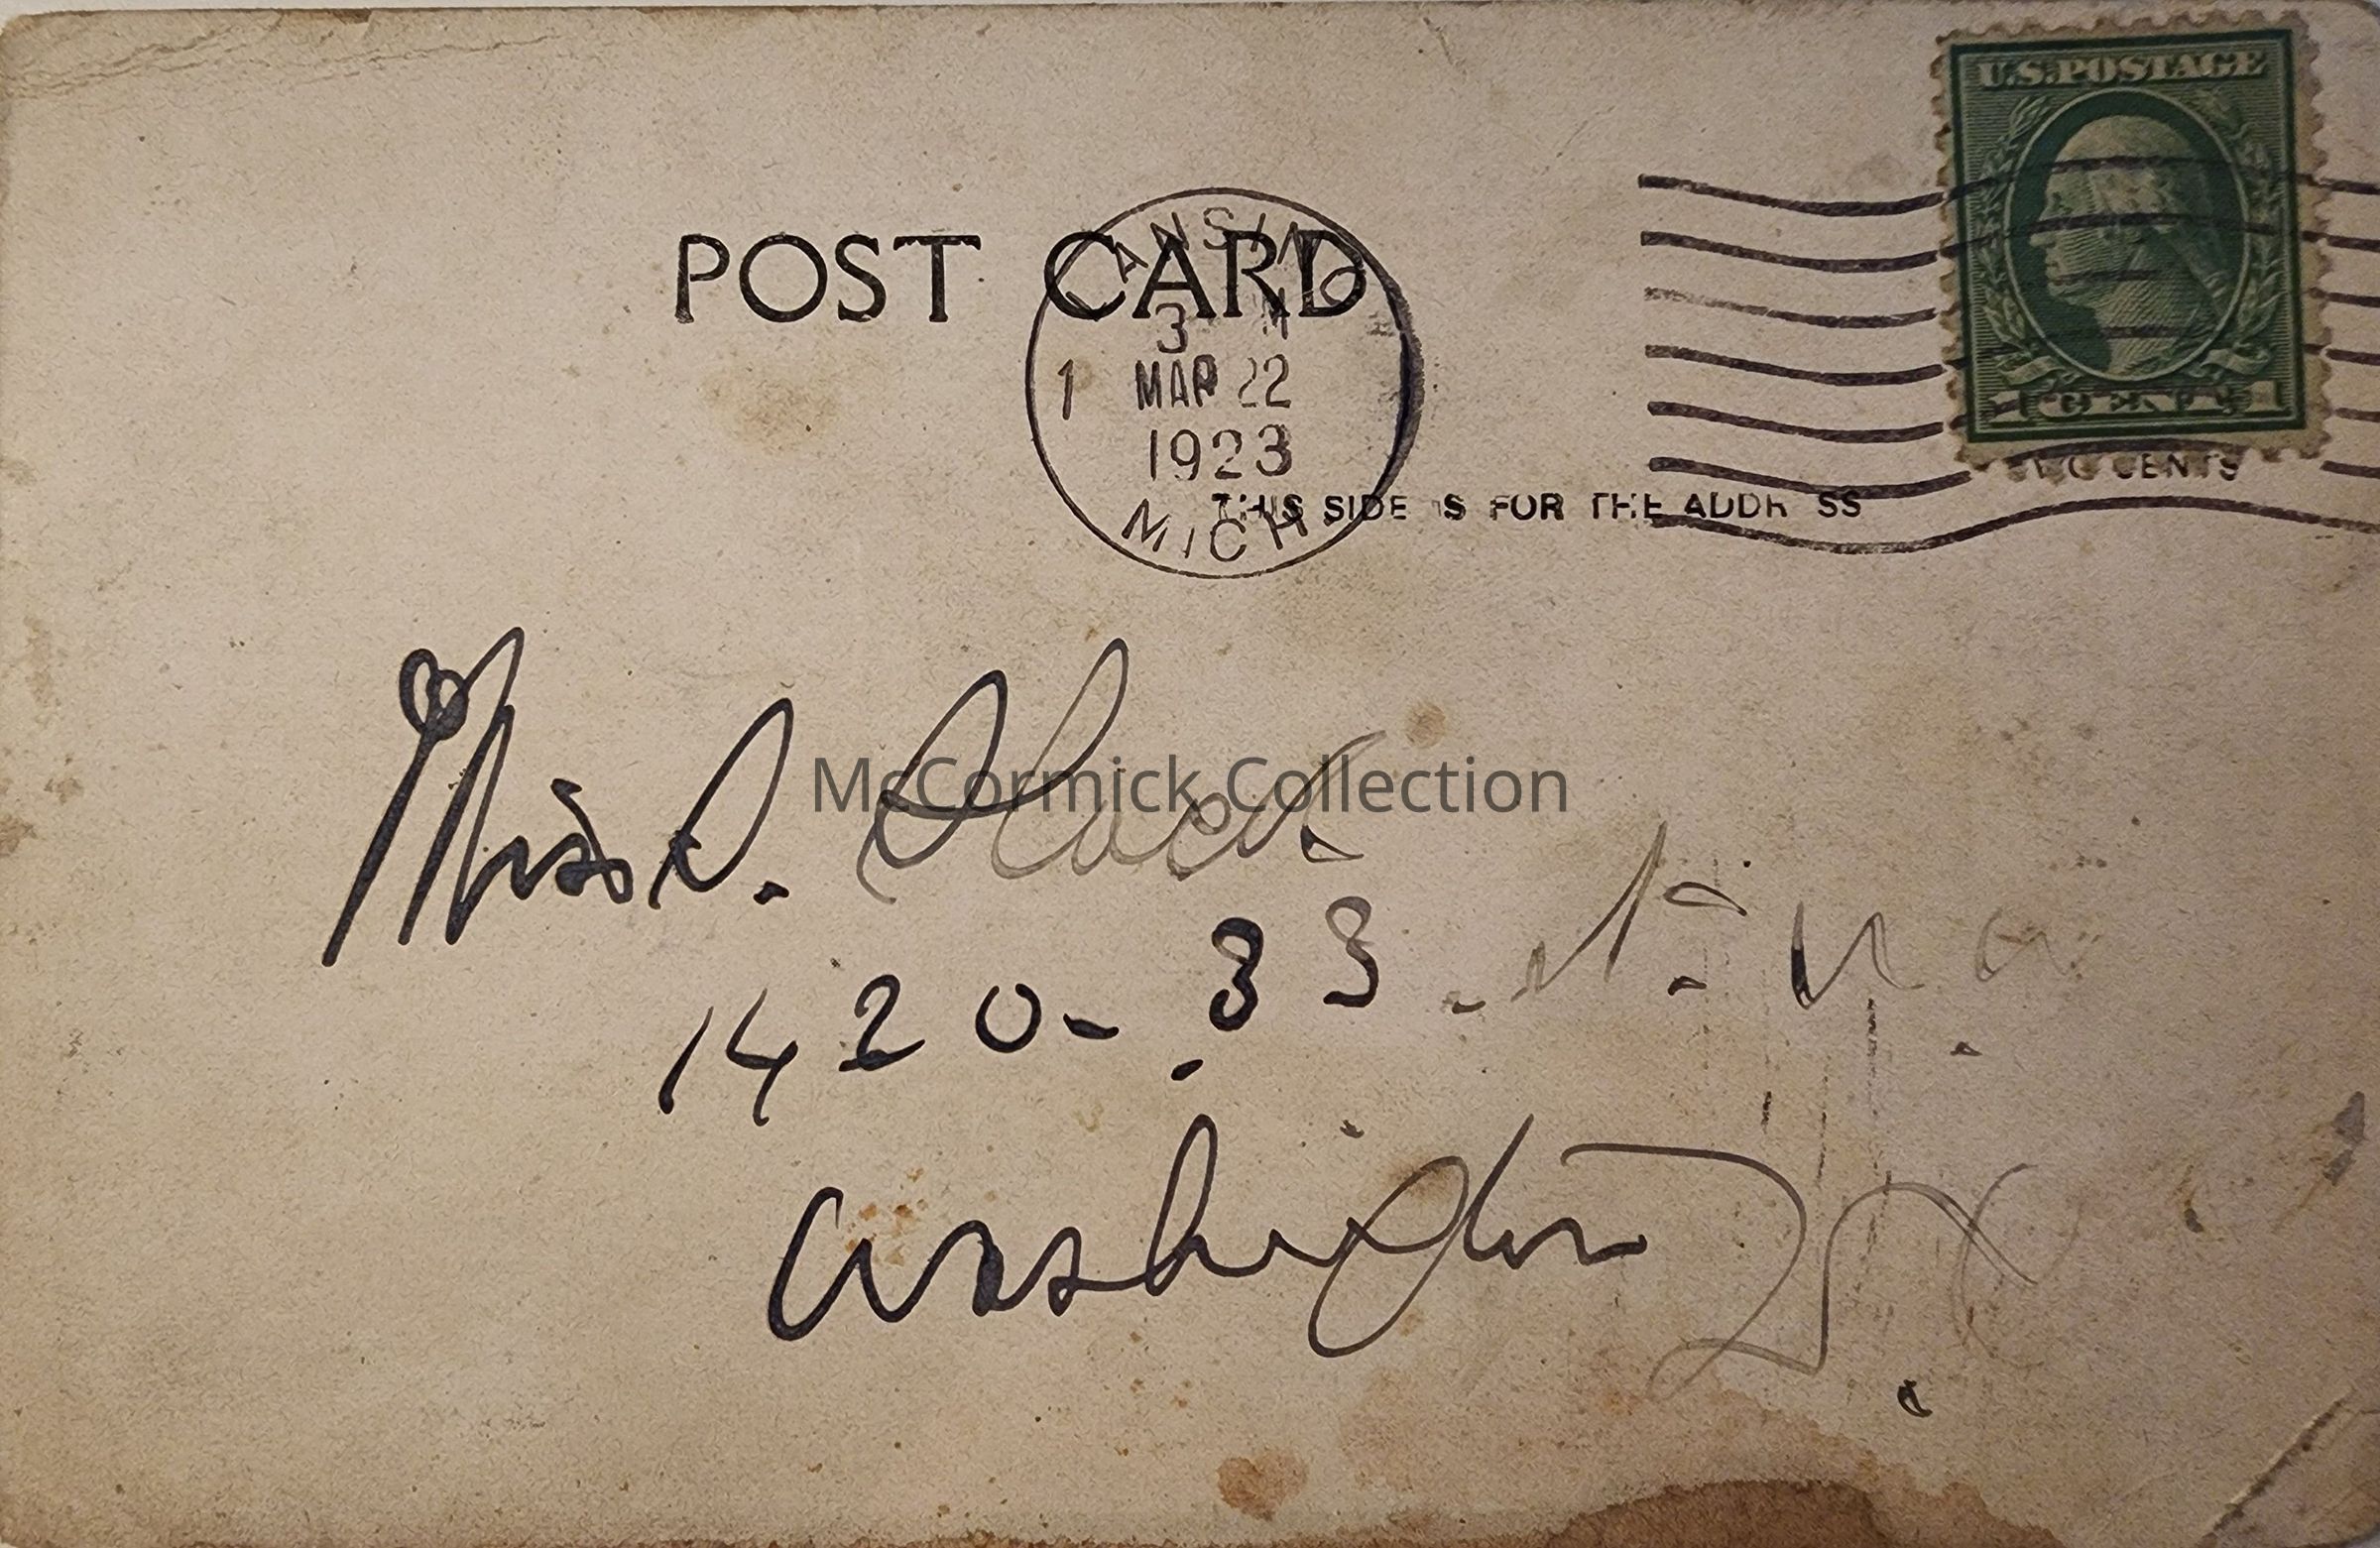 U.S. POSTAGE
1 CENT 1
CENTS
POST CARD
LANSING
3 M
1 MAR 22
1923
MICH.
THIS SIDE IS FOR THE ADDRESS
Miss
McCormick Collection
1420 - 33 - St. N.
Washington D.C.